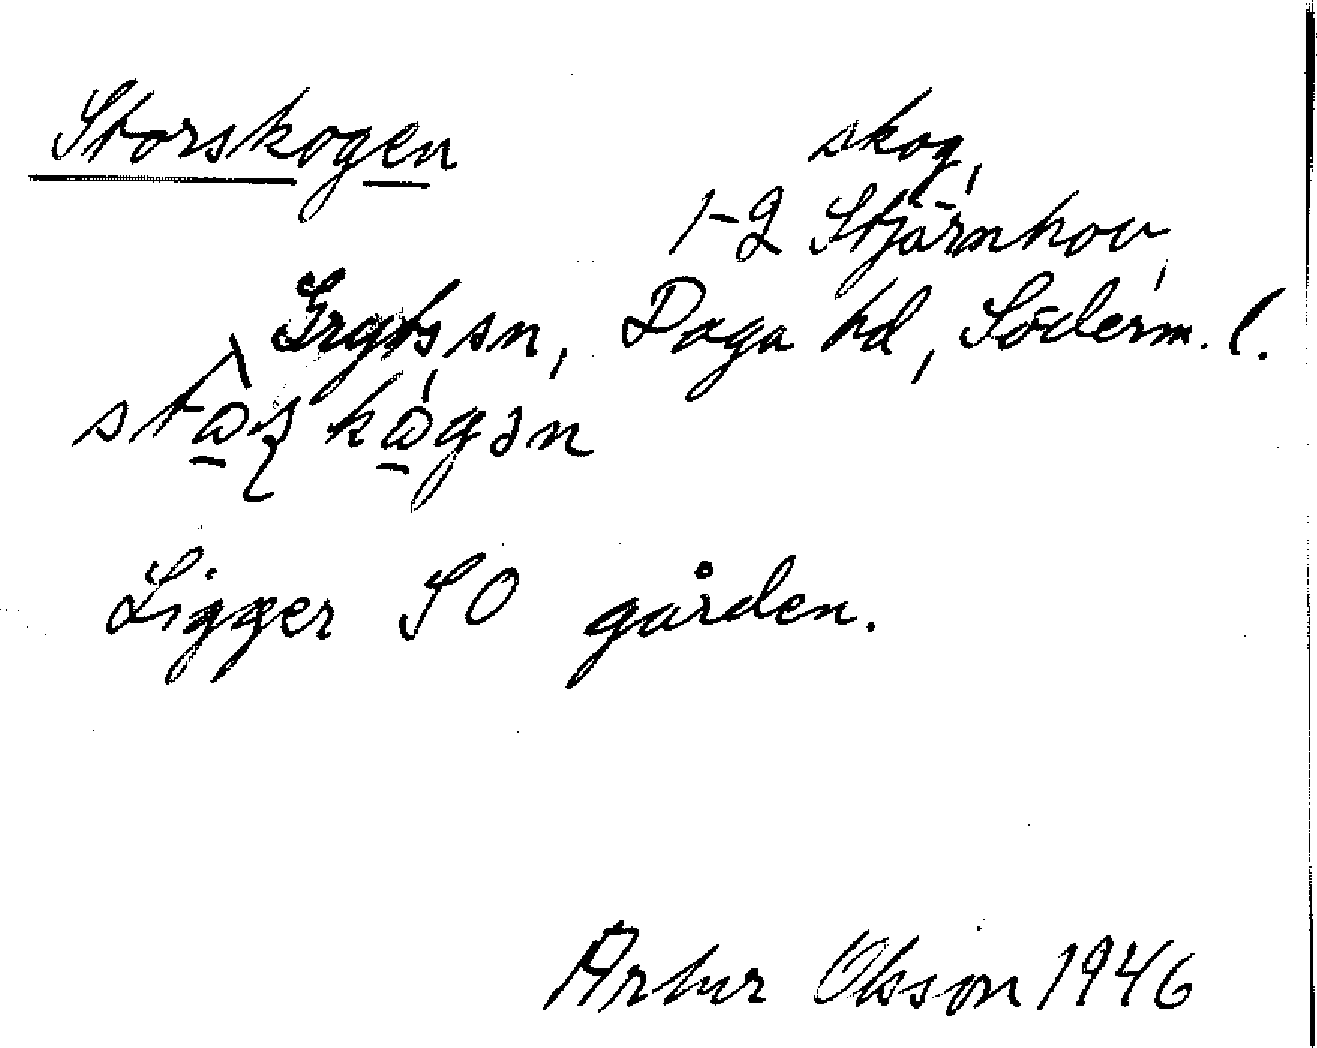 Storskogen
skog,
1-2 Stjärnhov,
Gryts sn, Daga hd, Söderm. l.
Ligger SO gården.
Artur Olsson 1946